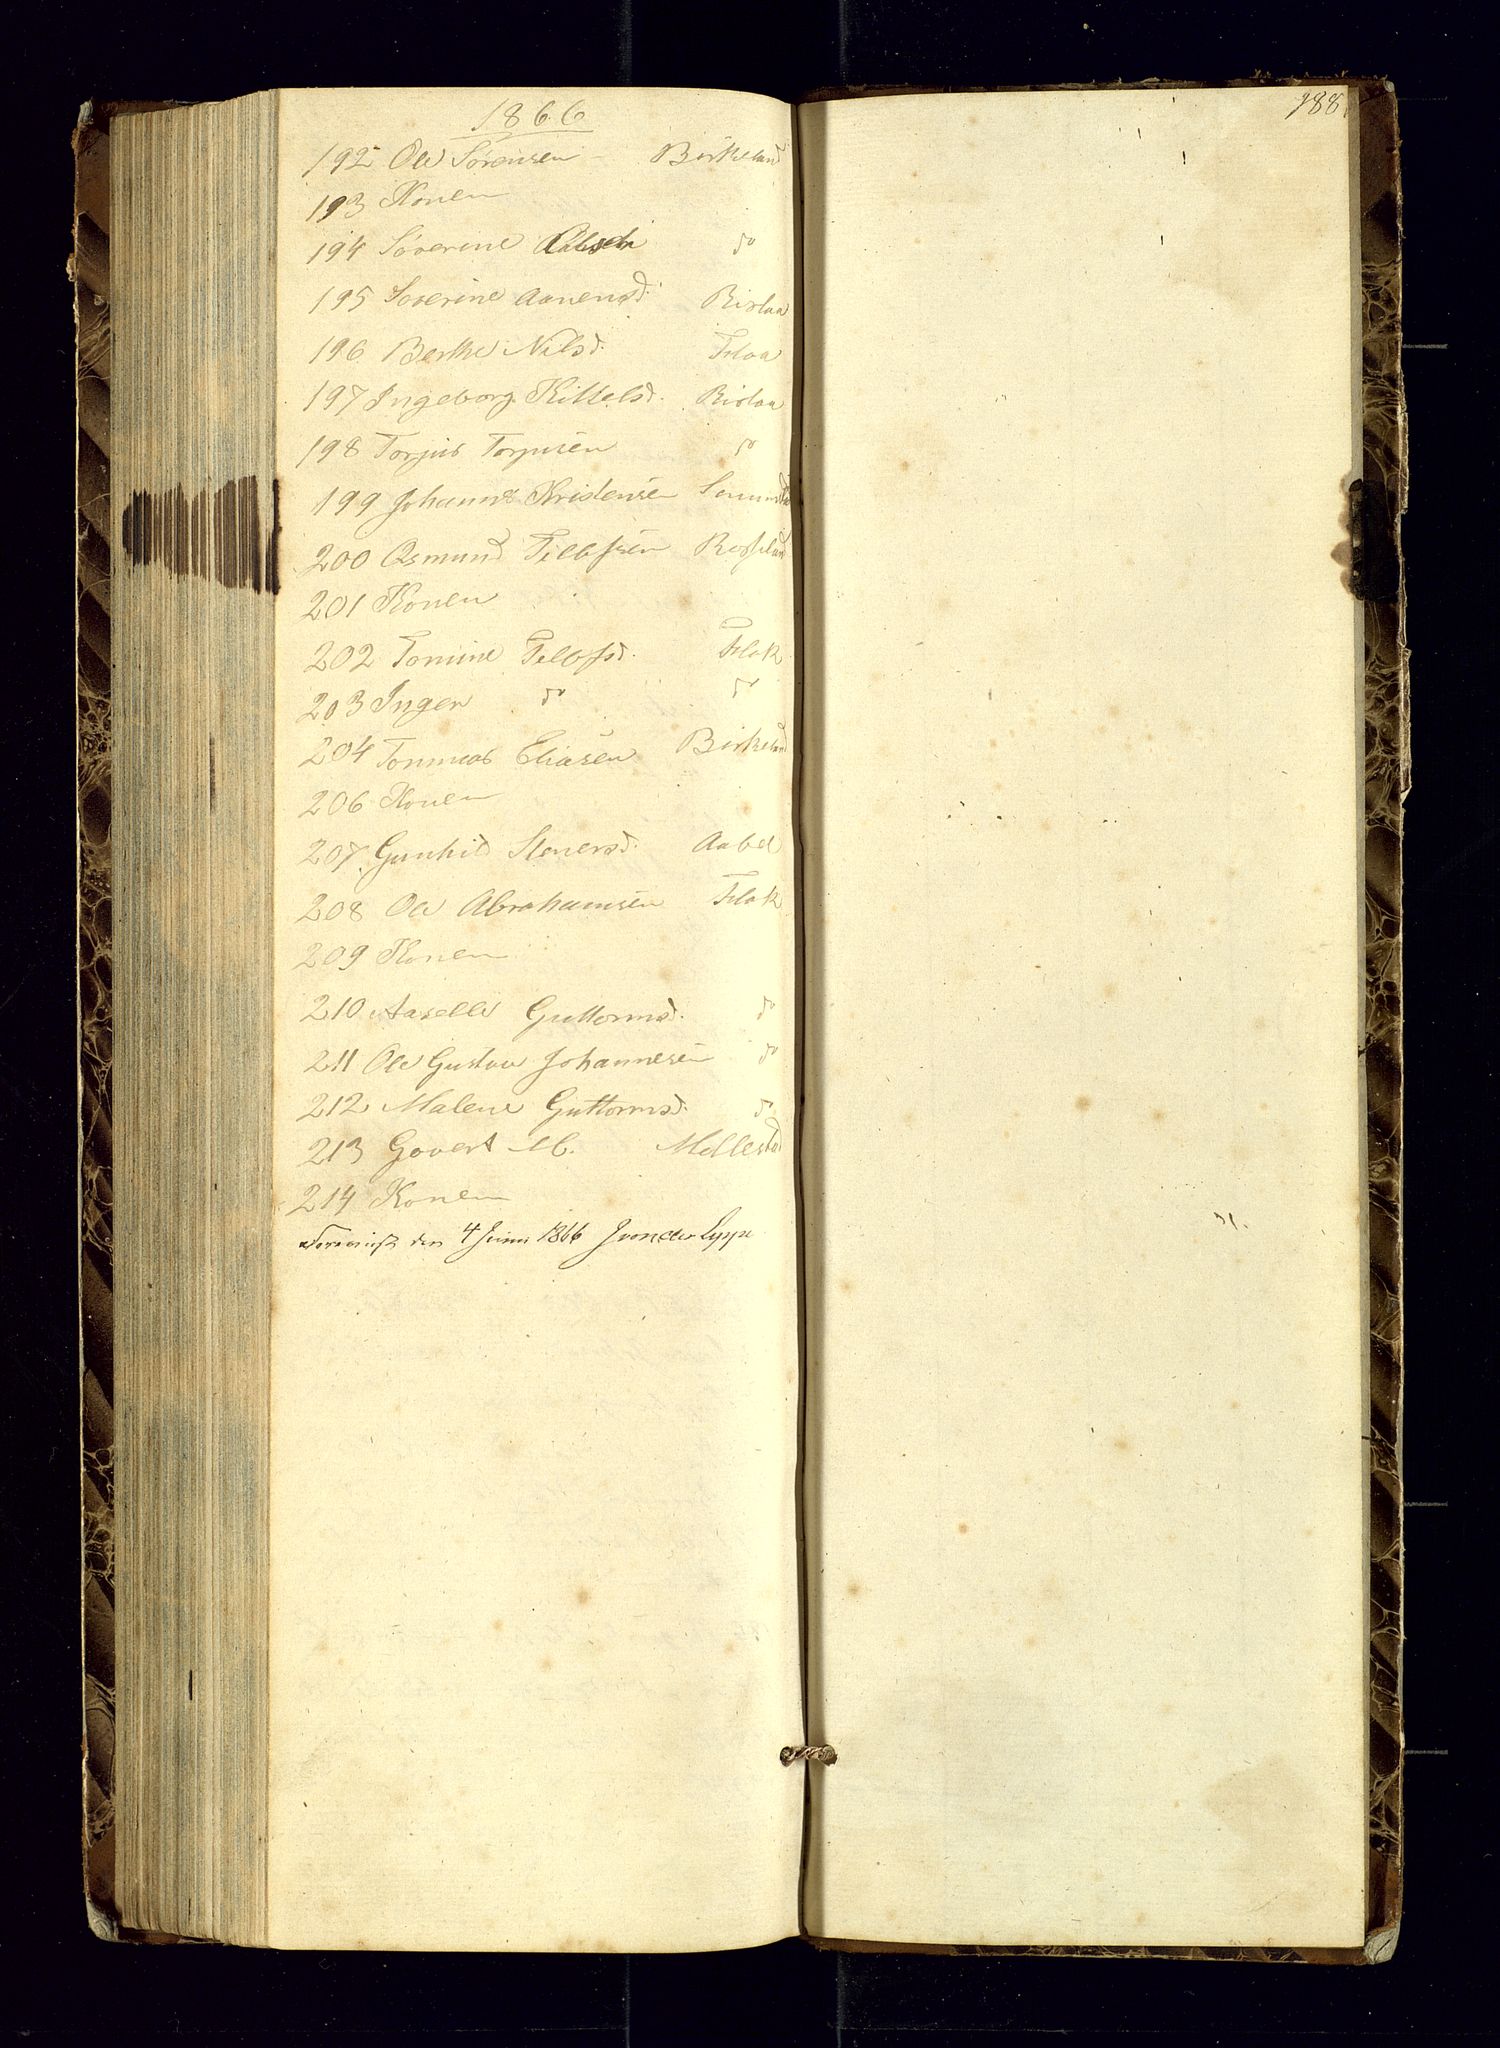 1866
192 Ole Sørensen - Birkeland
193 Konen
194 Severine do
195 Severine Aanensd. Rislaa
196 Berthe Nilsd. Flaa
197 Ingeborg Kittelsd. Rislaa
198 Torjus Torjusen do
199 Johannes Kristensen
200 Osmund Tellefsen
201 Konen
202 Tomine Tellefsd. Flak
203 Inger do do
204 Tommas Eliasen Birkeland
206 Konen
207 Gunhild Stenersd. Aabel
208 Ole Abrahamsen Flak
209 Konen
210 Aaselle Guttormsd. do
211 Ole Gustav Johannesen do
212 Malene Guttormsd. do
213 Govert M. Mollestad
214 Konen
den 4 Juni 1866 J von der Lippe
188